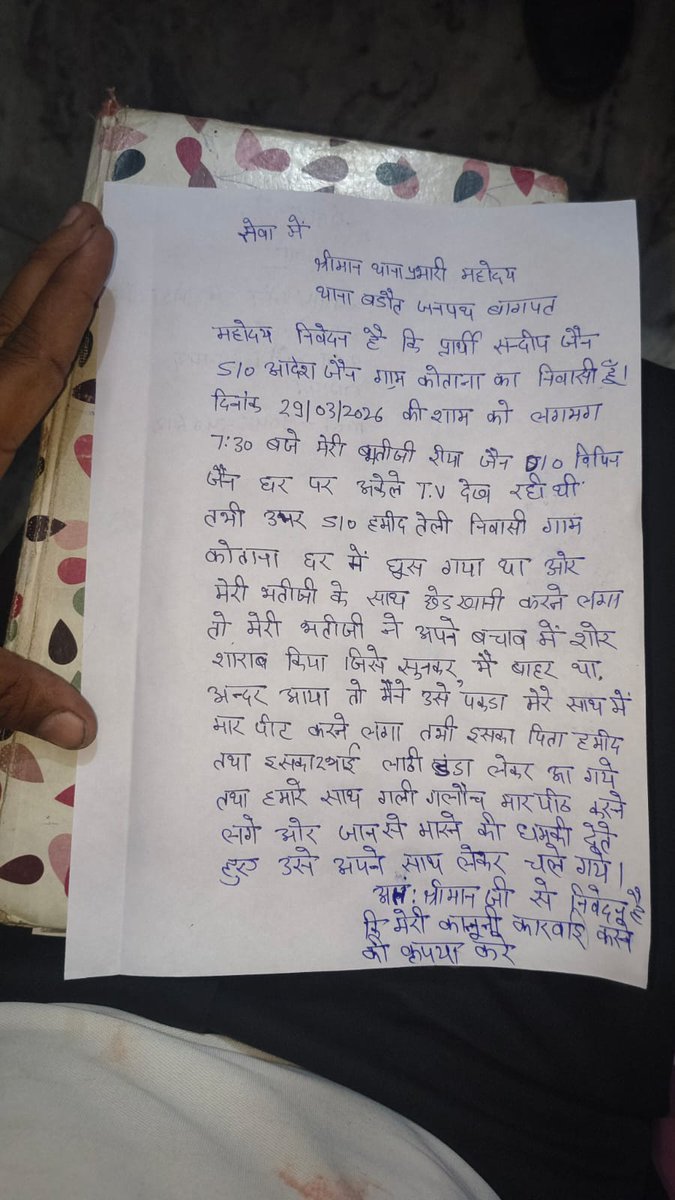 सेवा में
श्रीमान थाना प्रभारी महोदय
थाना बडौत जनपथ बागपत
महोदय निवेदन है कि प्रार्थी सन्दीप जैन
S/o आदेश जैन ग्राम कोताना का निवासी हूँ।
दिनांक 29/03/2026 की शाम को लगभग
7:30 बजे मेरी भतीजी रीया जैन D/o विपिन
जैन घर पर अकेले T.V देख रही थी
तभी उमर S/o हमीद तेली निवासी गाम
कोताना घर में घुस गया था ओर
मेरी भतीजी के साथ छेडखामी करने लगा
तो मेरी भतीजी ने अपने बचाव में शोर
शाराब किया जिसे सुनकर, मै बाहर था,
अन्दर आया तो मैंने उसे पकडा मेरे साथ में
मार पीट करने लगा तभी इसका पिता हमीद
तथा इसका 2 भाई लाठी डंडा लेकर आ गये
तथा हमारे साथ गली गलौच मारपीठ करने
लगे ओर जान से मारने की धमकी देते
हुए उसे अपने साथ लेकर चले गये।
अतं: श्रीमान जी से निवेदन है
कि मेरी कानूनी कारवाई करने
की कृपया करे